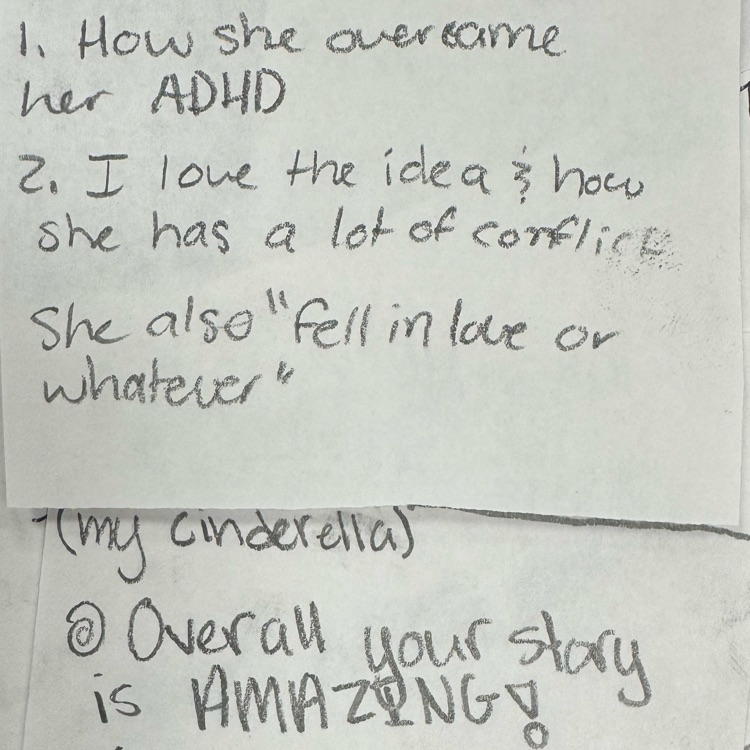 1. How she overcame
her ADHD
2. I love the idea & how
she has a lot of conflict
She also "fell in love or
whatever"
(my cinderella)
Overall your story
is AMAZING!